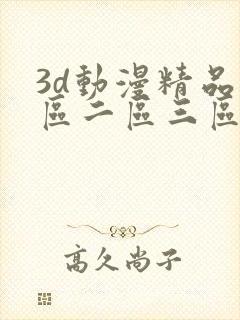 3d動漫精品
區二區三區
高久尚子